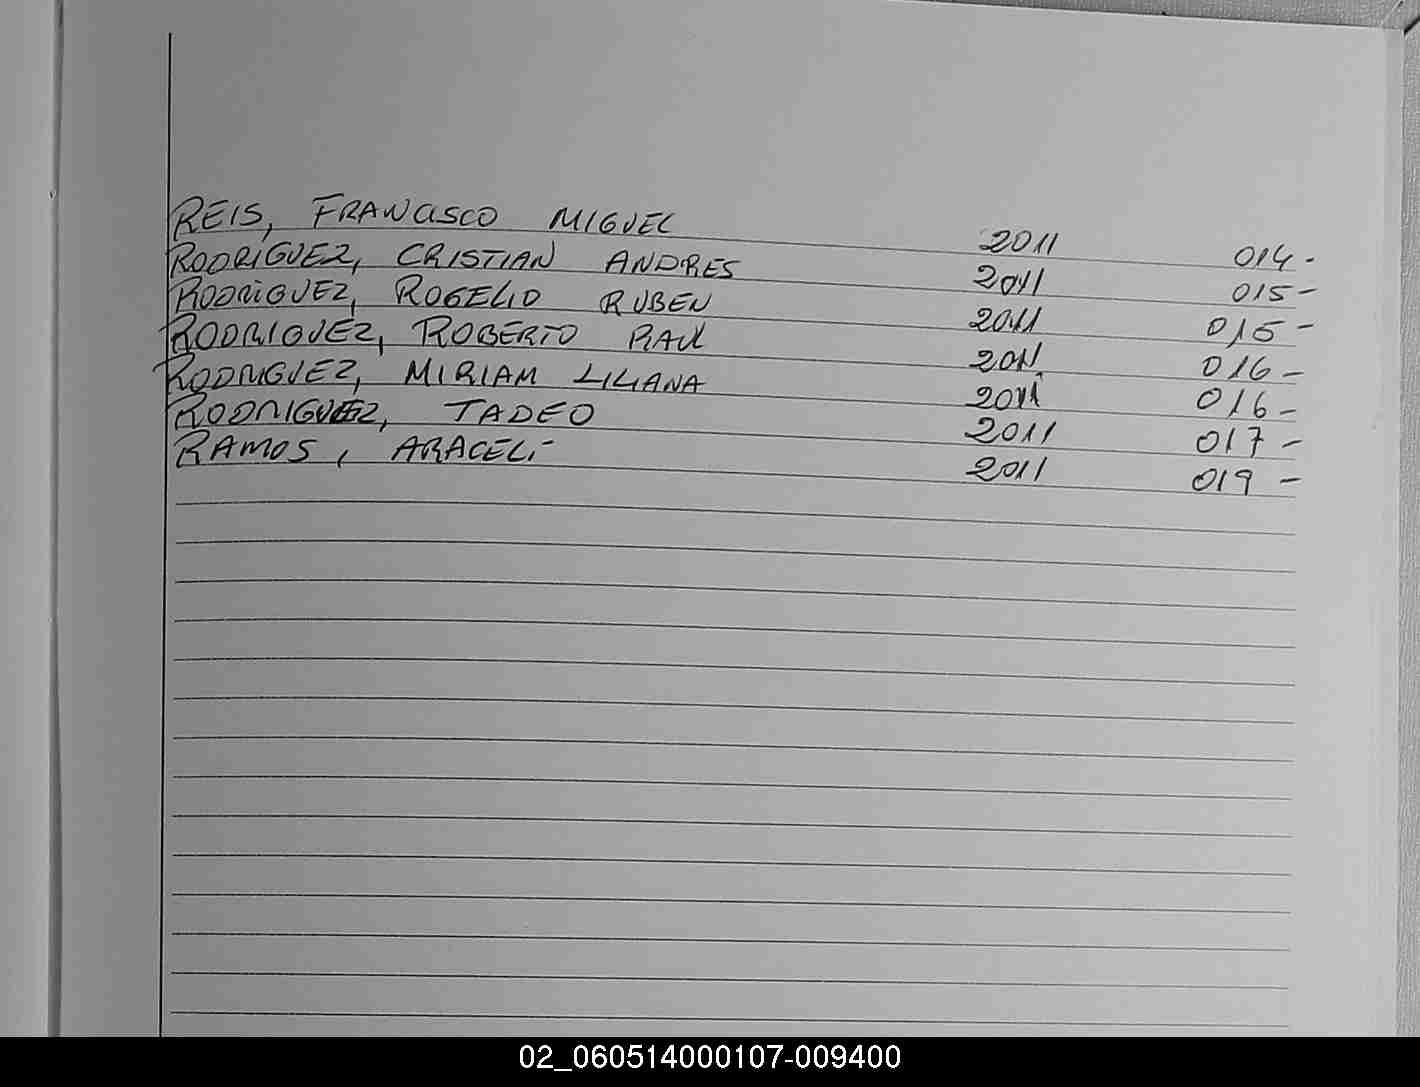 REIS, FRANCISCO MIGUEL 2011 014-
RODRÍGUEZ, CRISTIAN ANDRES 2011 015-
RODRIGUEZ, ROGELIO RUBEN 2011 015-
RODRIGUEZ, ROBERTO RAUL 2011 016-
RODRIGUEZ, MIRIAM LILIANA 2011 016-
RODRIGUEZ, TADEO 2011 017-
RAMOS, ARACELI 2011 019-
02_060514000107-009400